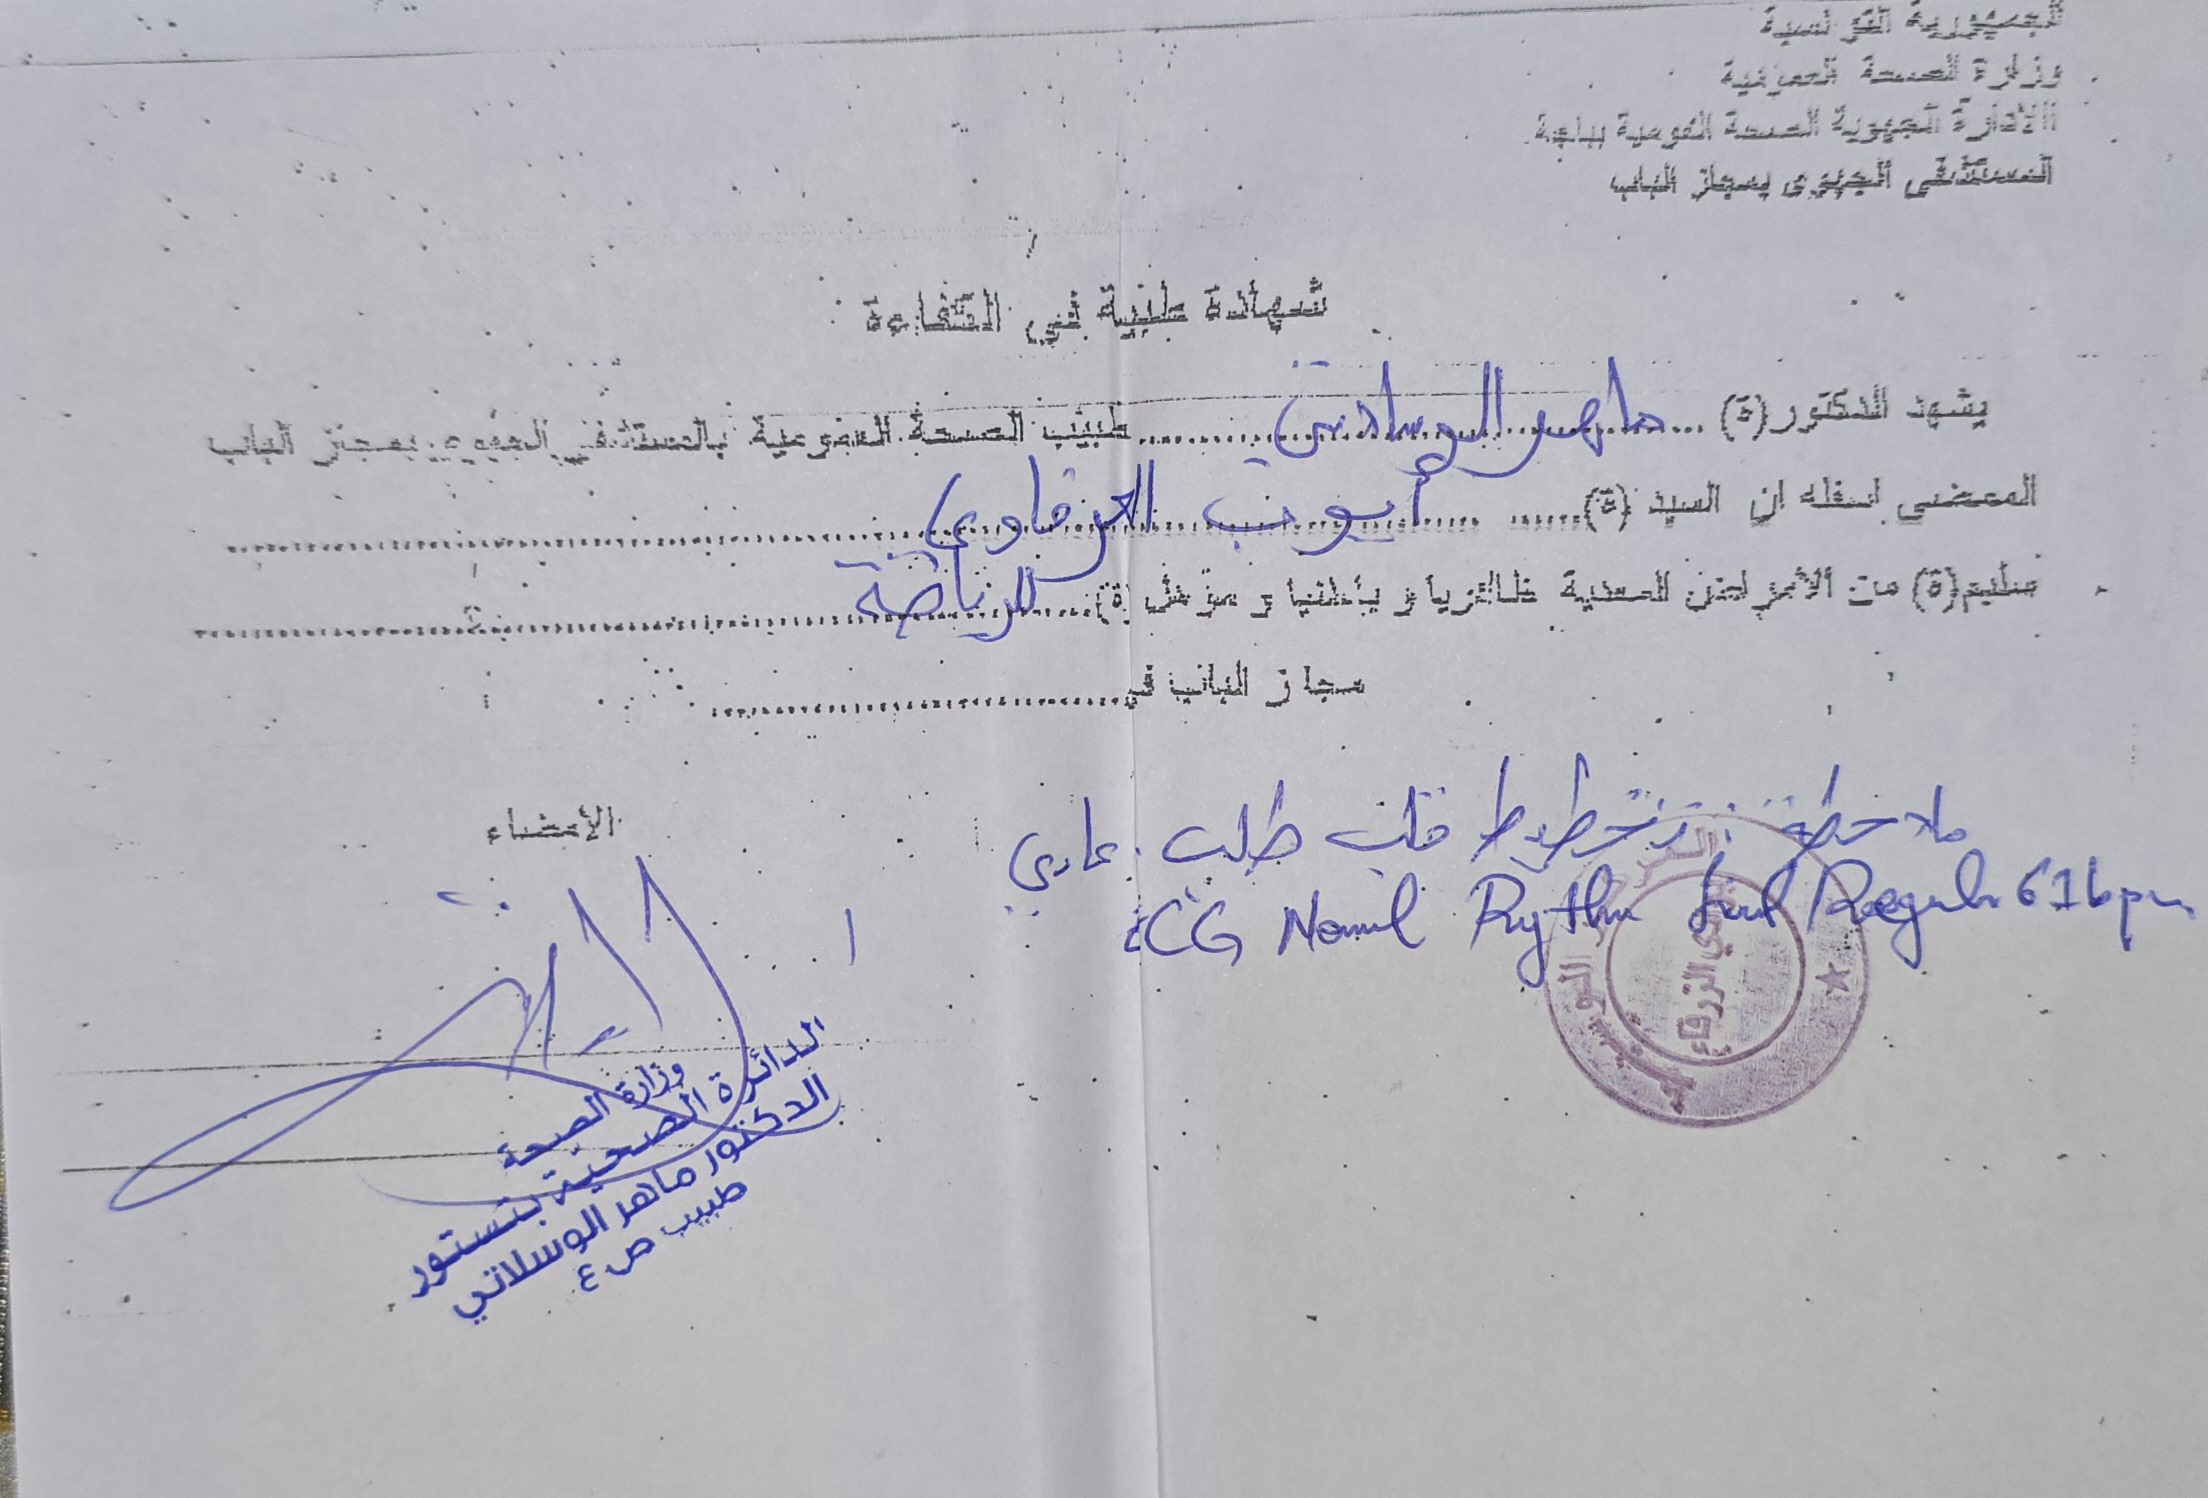 الجمهورية التونسية
وزارة الصحة العمومية
الادارة الجهوية للصحة العمومية بباجة
المستشفى الجهوي بمجاز الباب
شهادة طبية في الكفاءة
يشهد الدكتور(ة) ماهر الوسلاتي طبيب الصحة العمومية بالمستشفى الجهوي بمجاز الباب
الممضي اسفله ان السيد (ة) أيوب العرفاوي
سليم(ة) من الأمراض المعدية ظاهريا و باطنيا و مؤهل (ة) للرياضة
مجاز الباب في
الأمضاء
ملاحظة : تخطيط قلب طلب عادي
ECG Normal Rythm Regular 61 bpm
وزارة الصحة
الدائرة الصحية بتستور
الدكتور ماهر الوسلاتي
طبيب ص ع
الزرقاء